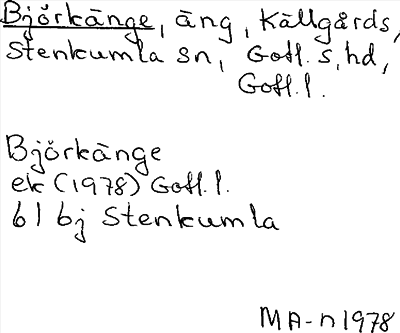 Björkänge, äng, Källgårds,
Stenkumla sn, Gotl. s. hd,
Gotl. l.
Björkänge
ek (1978) Gotl. l.
61 bj Stenkumla
MA-n 1978